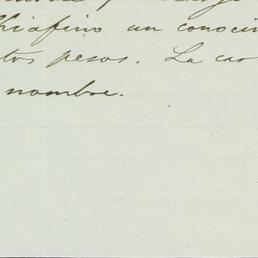 Chiafino un conocim
tos pesos. La cas
nombre.